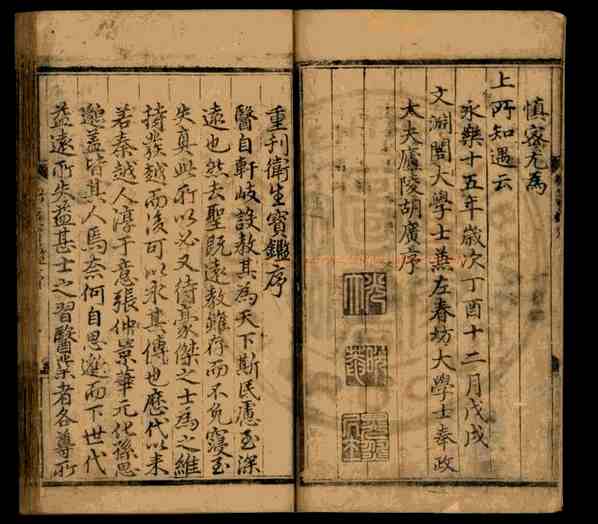 慎密尤為
上所知遇云
永樂十五年歲次丁酉十二月戊戌
文淵閣大學士兼左春坊大學士奉政
大夫廬陵胡廣序
重刊衛生寶鑑序
醫自軒岐設教其為天下斯民慮至深
遠也然去聖既遠教雖存而不免寖至
失真此所以必又待豪傑之士為之維
持發越而後可以永其傳也歷代以來
若秦越人淳于意張仲景華元化孫思
邈蓋皆其人焉奈何自思邈而下世代
益遠所失益甚士之習醫業者各尊所